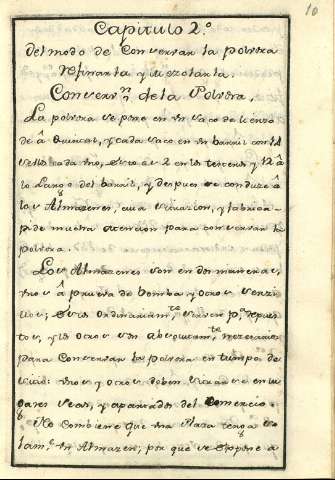 10
Capitulo 2.º
Del modo de Conservar la polvora
refinarla y mezclarla.
Conserv.n de la Polvora.
La polvora se pone en un saco de lienzo
de â Quintal, y cada saco en un barril con
cada uno, en los tercios y 12 â
lo Largo del barril, y despues se conduze â
los Almazenes, cuia situacion, y fabrica
pide mucha atencion para conservar la
polvora.
Los Almazenes son en dos maneras,
unos â prueva de bomba y otros senzi-
llos; estos ordinariam.te sirven p.a depues-
tos, y los otros son absolutam.te necesarios
para Conservar la polvora en tiempos de
sitio: unos y otros deben situarse en lu-
gares secos, y apartados del Comercio.
No Combiene que una Plaza tenga so
lam.te un Almazen; por que se expone a